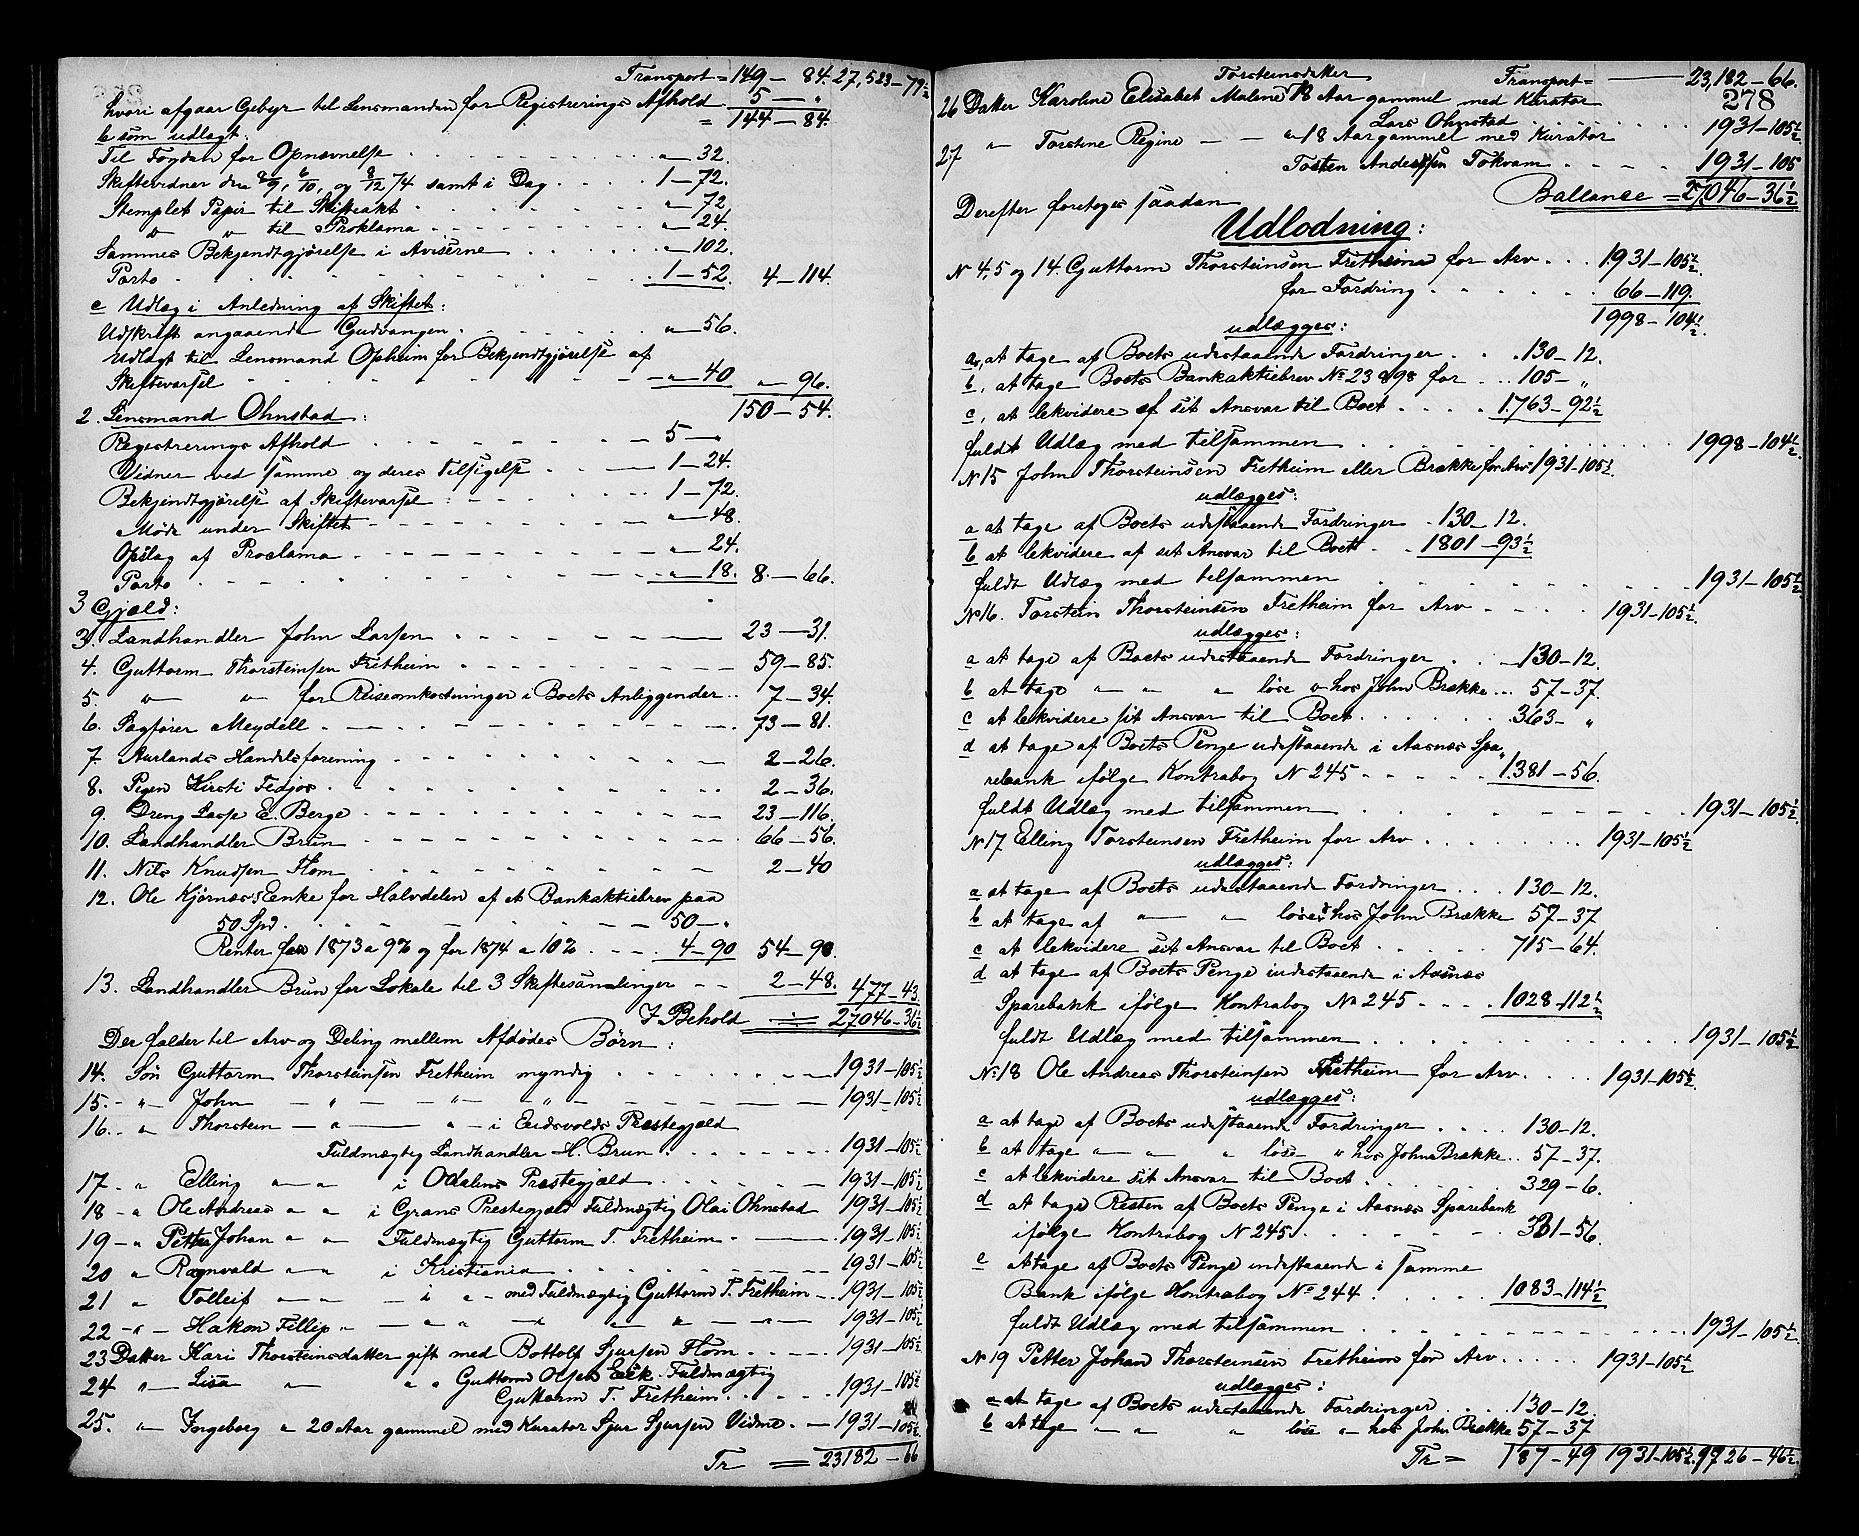 Transport = 149 – 84. 27,523 – 79½
hvori afgaar Gebyr til Lensmanden for Registrerings Afhold 5 – "
= 144 – 84.
b som udlagt:
Til Fogden for Opnævnelse . . . " – 32.
Skiftevidner den 8/9, 6/10, og 8/12 74 samt i Dag . . . . 1 – 72.
Stemplet Papir til Skifteakt . . . " – 72
" " til Proklama . . . " – 24.
Sammes Bekjendtgjørelse i Aviserne . . . " – 102.
Porto . . . 1 – 52. 4 – 114.
c Udlæg i Anledning af Skiftet:
Udskrift angaaende Gudvangen . . . " – 56.
Udlagt til Lensmand Opheim for Bekjendtgjørelse af
Skiftevarsel . . . " – 40 " – 96.
150 – 54.
2. Lensmand Ohnstad:
Registrerings Afhold . . . 5 – "
Vidner ved samme og deres Tilsigelse . . . 1 – 24.
Bekjendtgjørelse af Skiftevarsel . . . 1 – 72.
Møde under Skiftet . . . " – 48.
Opslag af Proclama . . . " – 24.
Porto . . . " – 18. 8. – 66.
3 Gjæld:
3. Landhandler John Larsen . . . 23 – 31.
4. Guttorm Thorsteinsen Fretheim . . . 59 – 85.
5. " " for Reiseomkostninger i Boets Anliggender . . 7 – 34.
6. Sagfører Meydell . . . 73 – 81.
7. Aurlands Handelsforening . . . 2 – 26.
8. Pigen Kirsti Fedjos . . . 2 – 36.
9. Dreng Lasse E. Berge . . . 23 – 116.
10. Landhandler Brun . . . 66 – 56.
11. Nils Knudsen Flom . . . 2 – 40
12. Ole Kjørnæs Enke for Halvdelen af et Bankaktiebrev paa
50 Spd . . . 50 – "
Renter for 1873 a 9% og for 1874 a 10% . . . 4 – 90 54 – 90.
13. Landhandler Brun for Lokale til 3 Skiftesamlinger . . 2 – 48. 477 – 43
I Behold = 27046 – 36½
Der falder til Arv og Deling mellem Afdødes Børn:
14. Søn Guttorm Thorsteinsen Fretheim myndig . . . 1931 – 105½
15. – " John – " – " – " – 1931 – 105½
16. – " Thorstein – " – " – i Eidsvolds Præstegjæld
Fuldmægtig Landhandler H. Brun . . . 1931 – 105½
17. – " Elling " – " i Odalens Præstegjæld . . . 1931 – 105½
18 – " Ole Andreas " " i Grans Prestegjæld Fuldmægtig Olai Ohnstad 1931 – 105½
19 – " Petter Johan " – " Fuldmægtig Guttorm T. Fretheim . – 1931 – 105½
20 " Ragnvald " – " i Kristiania . . . 1931 – 105½
21 " Tolleif " – " – i " – med Fuldmægtig Guttorm T. Fretheim – . 1931 – 105½
22 – " – Hakon Fillip " – " " – " – " – " – 1931 – 105½
23 Datter Kari Thorsteinsdatter gift med Bottolf Sjursen Flom . . . 1931 – 105½
24 " – Lisa " " " Guttorm Olsen Fuldmægtig
Guttorm T. Fretheim . . . 1931 – 105½
25. " – Ingeborg " 20 Aar gammel med Kurator Sjur Sjursen Vidme . – 1931 – 105½.
Tr = 23182 – 66
Torsteinsdatter Transport = 23,182 – 66.
278
26 Datter Karoline Elisabet Malene 18 Aar gammel med Kurator
Lars Ohnstad . . . 1931 – 105½
27 " Torstine Regine – – " 18 Aar gammel med Kurator
Tosten Anderssen Tokvam . . . 1931 – 105
Ballance = 27046 – 36½
Derefter foretoges saadan
Udlodning:
N 4, 5 og 14. Guttorm Thorsteinsen Fretheim for Arv . . . 1931 – 105½.
for Fordring . . . 66 – 119.
1998 – 104½
udlægges:
a, at tage af Boets udestaaende Fordringer . . . 130 – 12.
b, at tage Boets Bankaktiebrev No 23898 for . . . 105 – "
c, at lekvidere af sit Ansvar til Boet . . . 1763 – 92½
fuldt Udlæg med tilsammen . . . 1998 – 104½.
N 15 John Thorsteinsen Fretheim eller Brække for Arv 1931 – 105½.
udlægges:
a at tage af Boets udestaaende Fordringer . 130 – 12.
b at lekvidere af sit Ansvar til Boet . . 1801 – 93½
fuldt Udlæg med tilsammen . . . 1931 – 105½
No 16. Torstein Thorsteinsen Fretheim for Arv . . . 1931 – 105½.
udlægges:
a at tage af Boets udestaaende Fordringer . . 130 – 12.
b at tage " – " " løse " hos John Brække . . . 57 – 37.
c at lekvidere sit Ansvar til Boet . . . 363 – "
d at tage af Boets Penge udestaaende i Aasnæs Spa„
rebank ifølge Kontrabog N 245 . . . 1381 – 56.
fuldt Udlæg med tilsammen . . . 1931 – 105½.
N 17 Elling Torsteinsen Fretheim for Arv . . . 1931 – 105½
udlægges:
a at tage af Boets udestaaende Fordringer . . . 130 – 12.
b at tage af " – " løse hos John Brække 57 – 37
c at lekvidere sit Ansvar til Boet . . . 715 – 64.
d at tage af Boets Penge indestaaende i Aasnæs
Sparebank ifølge Kontrabog No 245 . . . 1028 – 112½
fuldt Udlæg med tilsammen . . . 1931 – 105½
No 18 Ole Andreas Thorsteinsen Fretheim for Arv . . . 1931 – 105½
udlægges:
a at tage af Boets udestaaende Fordringer . . . 130 – 12.
b at tage " – " " løse " hos John Brække . . 57 – 37.
c at lekvidere sit Ansvar til Boet . . . 329 – 6.
d at tage Resten af Boets Penge i Aasnæs Sparebank
ifølge Kontrabog N 245 . . . 331 – 56.
e at tage af Boets Penge indestaaende i samme
Bank ifølge Kontrabog No 244 . . . 1083 – 114½
fuldt Udlæg med tilsammen . . . 1931 – 105½.
No 19 Petter Johan Thorsteinsen Fretheim for Arv . . . 1931 – 105½
udlægges:
a at tage af Boets udestaaende Fordringer . . . 130 – 12.
b at tage " – " " løse " hos John Brække 57 – 37
Tr = 187 – 49 1931 – 105½ 9726 – 46½.